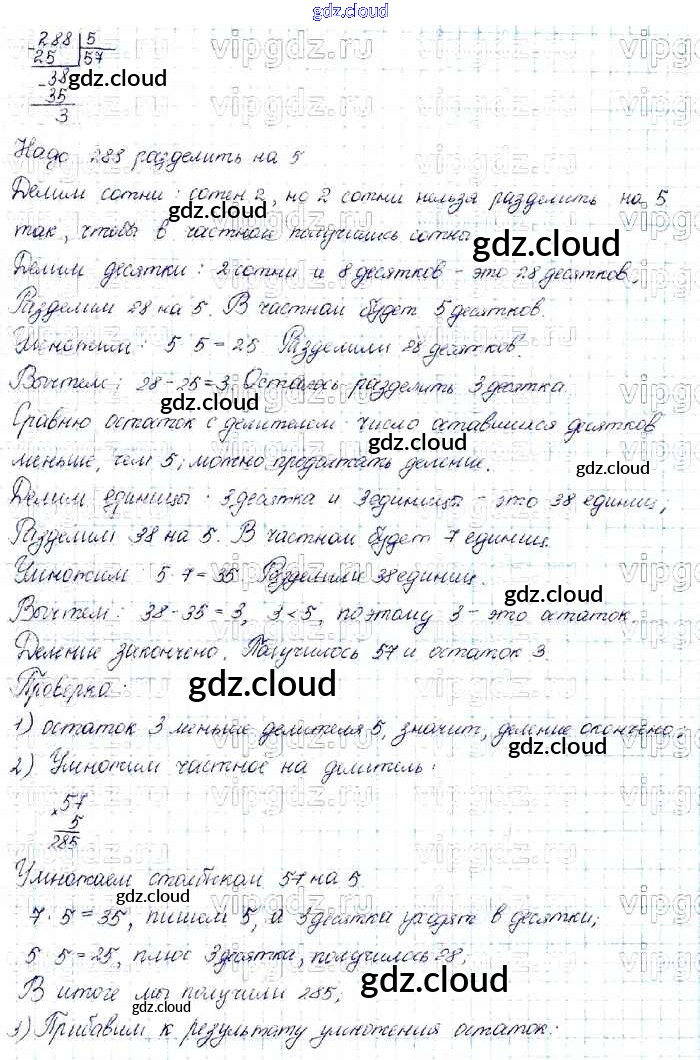 gdz.cloud
288 | 5
25 | 57
38
35
3
Надо 288 разделить на 5
Делим сотни: сотен 2, но 2 сотни нельзя разделить на 5
так, чтобы в частном получились сотни.
Делим десятки: 2 сотни и 8 десятков - это 28 десятков,
Разделим 28 на 5. В частном будет 5 десятков.
Умножим: 5 5 = 25 Разделили 28 десятков.
Вычтем: 28 - 25 = 3, Осталось разделить 3 десятка.
Сравню остаток с делителем: число оставшихся десятков
меньше, чем 5; можно продолжать деление.
Делим единицы: 3 десятка и 3 единицы - это 38 единиц;
Разделим 38 на 5. В частном будет 7 единиц.
Умножим: 5 · 7 = 35 Разделили 38 единиц.
Вычтем: 38 - 35 = 3, 3 < 5, поэтому 3 - это остаток.
Деление закончено. Получилось 57 и остаток 3
Проверка:
1) остаток 3 меньше делителя 5, значит, деление окончено;
2) Умножим частное на делитель:
× 57
5
285
Умножаем столбиком 57 на 5.
7 · 5 = 35, пишем 5, а 3 десятка уходят в десятки;
5 5 = 25, плюс 3 десятка, получилось 28,
В итоге мы получили 285,
3) Прибавим к результату умножения остаток: